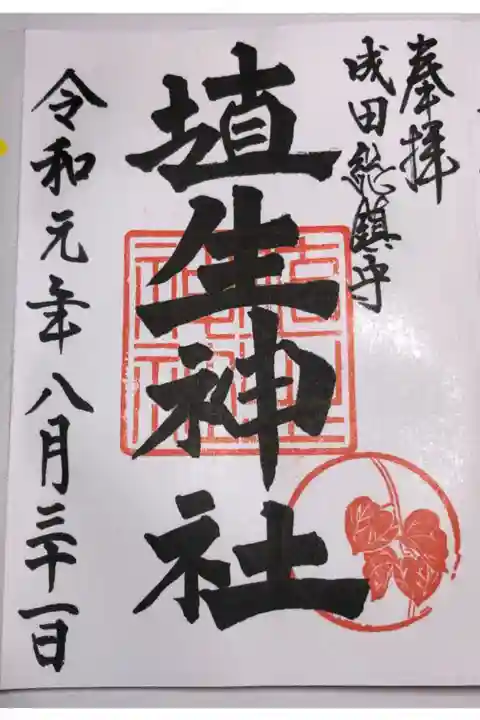 奉拝
成田総鎮守
埴生神社
令和元年八月三十一日